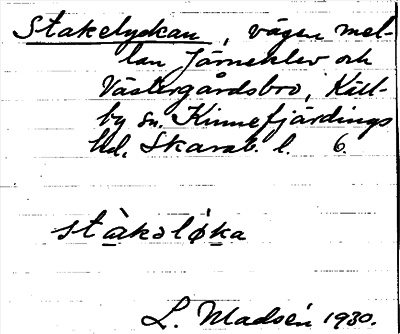 Stakelyckan, vägen mel-
lan Järneklev och
Västergårdsbro, Käll-
by sn. Kinnefjärdings
hd. Skarab. l. 6.
stàkəlø̀ka
L. Madsén 1930.